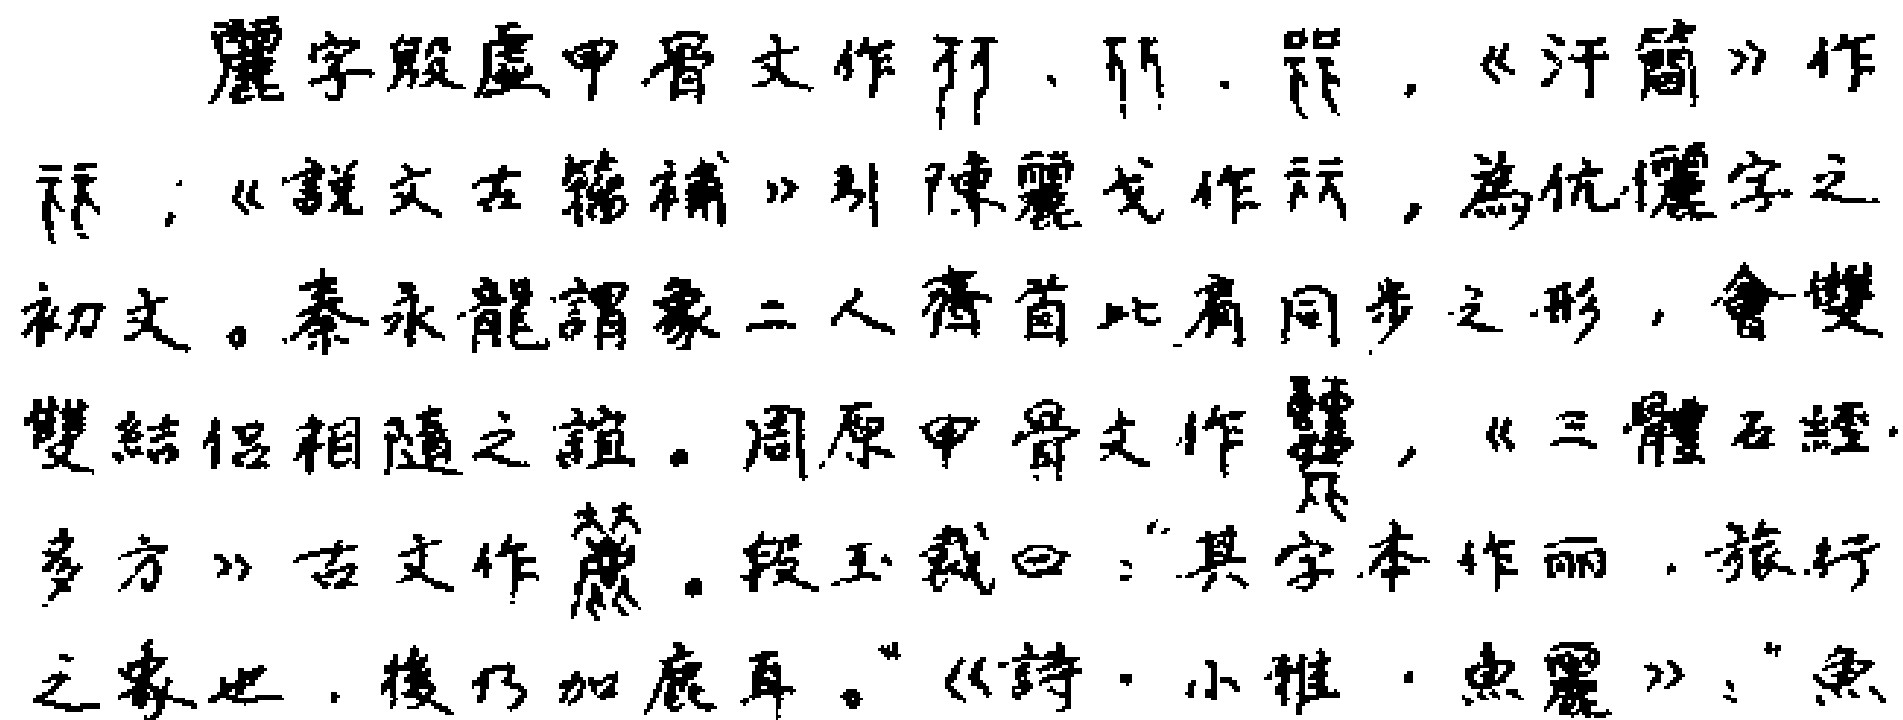 麗字殷虛甲骨文作、、，《汗簡》作
；《說文古籀補》引陳麗戈作，為伉儷字之
初文。秦永龍謂象二人齊首比肩同步之形，會雙
雙結侶相隨之誼。周原甲骨文作，《三體石經·
多方》古文作。段玉裁曰：“其字本作丽，旅行
之象也，後乃加鹿耳。”《詩·小雅·魚麗》：“魚